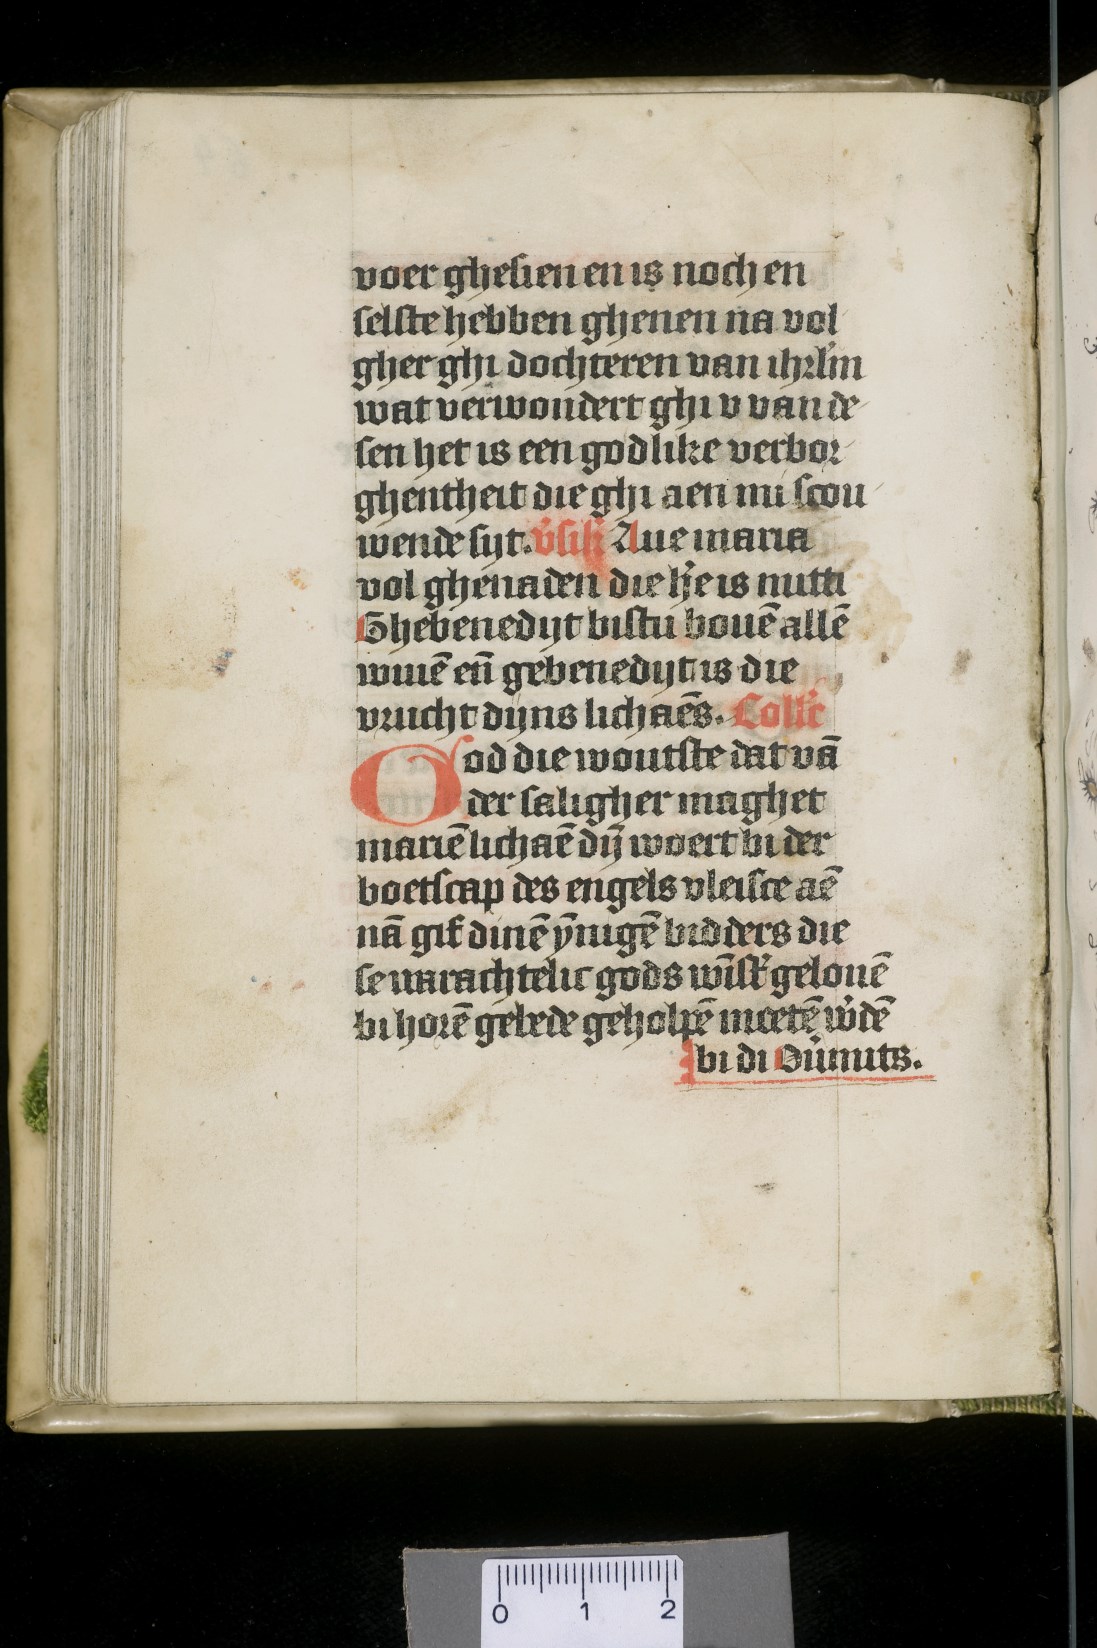 voer ghesien en is noch en
selste hebben ghenen na vol
gher ghi dochteren van ihrl'm
wat verwondert ghi v van de
sen het is een godlike verbor
ghentheit die ghi aen mi scou
wende sijt. v'sik' Aue maria
vol ghenaden die h'e is mitti
Ghebenedijt bistu bouē allē
wiuē eñ gebenedijt is die
vrucht dijns lichaēs. Coll'c
God die woutste dat vā
der saligher maghet
mariē lichaē dijn woert bi der
boetscap des engels vleisce aē
nā gif dinē ȳnigē bidders die
se warachtelic gods gelouē
bi horē gebede geholpē moetē w'dē
bi di
0 1 2